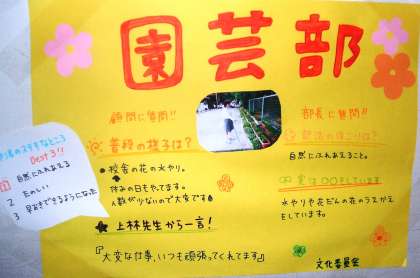 園芸部
顧問に質問!!
普段の様子は?
●校舎の花の水やり。
休みの日もやってます。
人数が少ないので大変です
◆上林先生から一言!
『大変な仕事、いつも頑張ってくれてます』
部長に質問!!
部活のほこりは?
自然にふれあえること。
実は〇〇しています
水やりや花だんの花のうえかえ
もしています。
文化委員会
ステキなところ
Best 3!!
1 自然にふれあえる
2 たのしい
3 早おきできるようになった